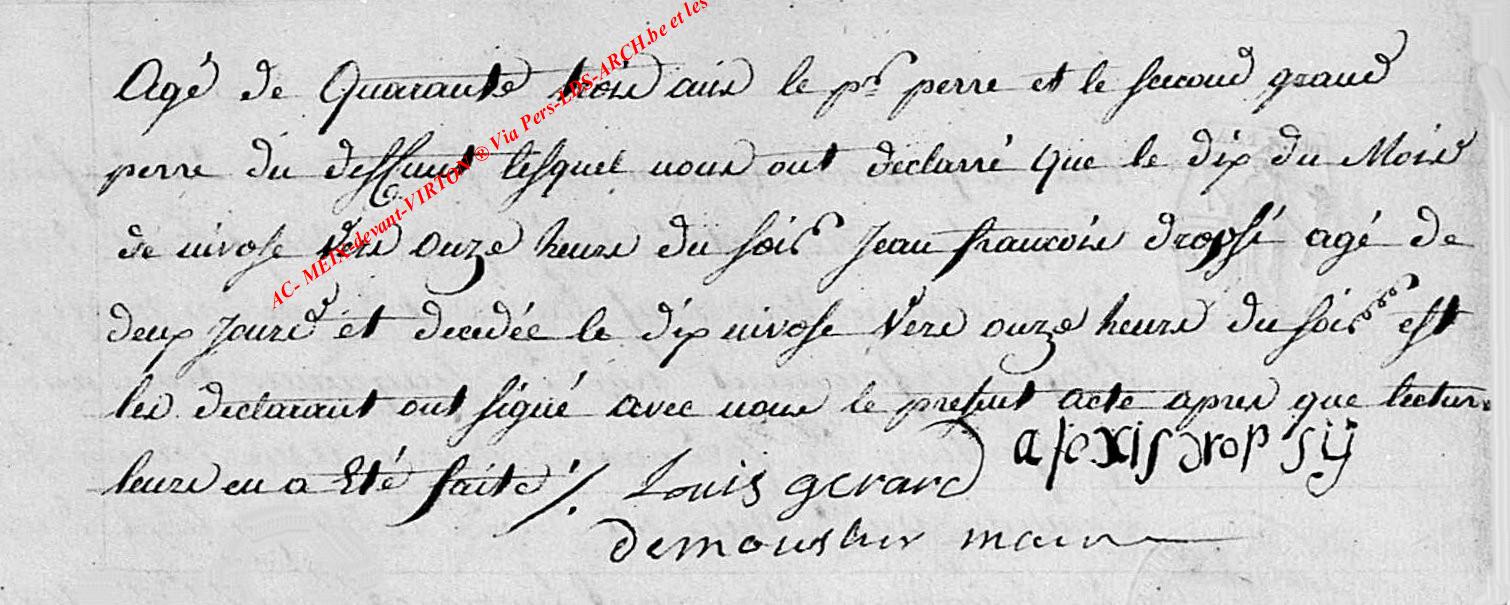 Agé de Quarante trois ans le pr perre et le second grand
perre du deffunt lesquel nous ont declarré que le dix du Mois
de nivose vers onze heure du soir Jean françois dropsi agé de
deux Jours et decedée le dix nivose Vers onze heure du soir est
les declarant ont signé avec nous le present acte apres que lectur
leure en a Eté faite /. Louis gerard alexis dropsÿ
demousher maire
AC- MEIX-devant-VIRTON ® Via Pers-LDS-ARCH.be et les